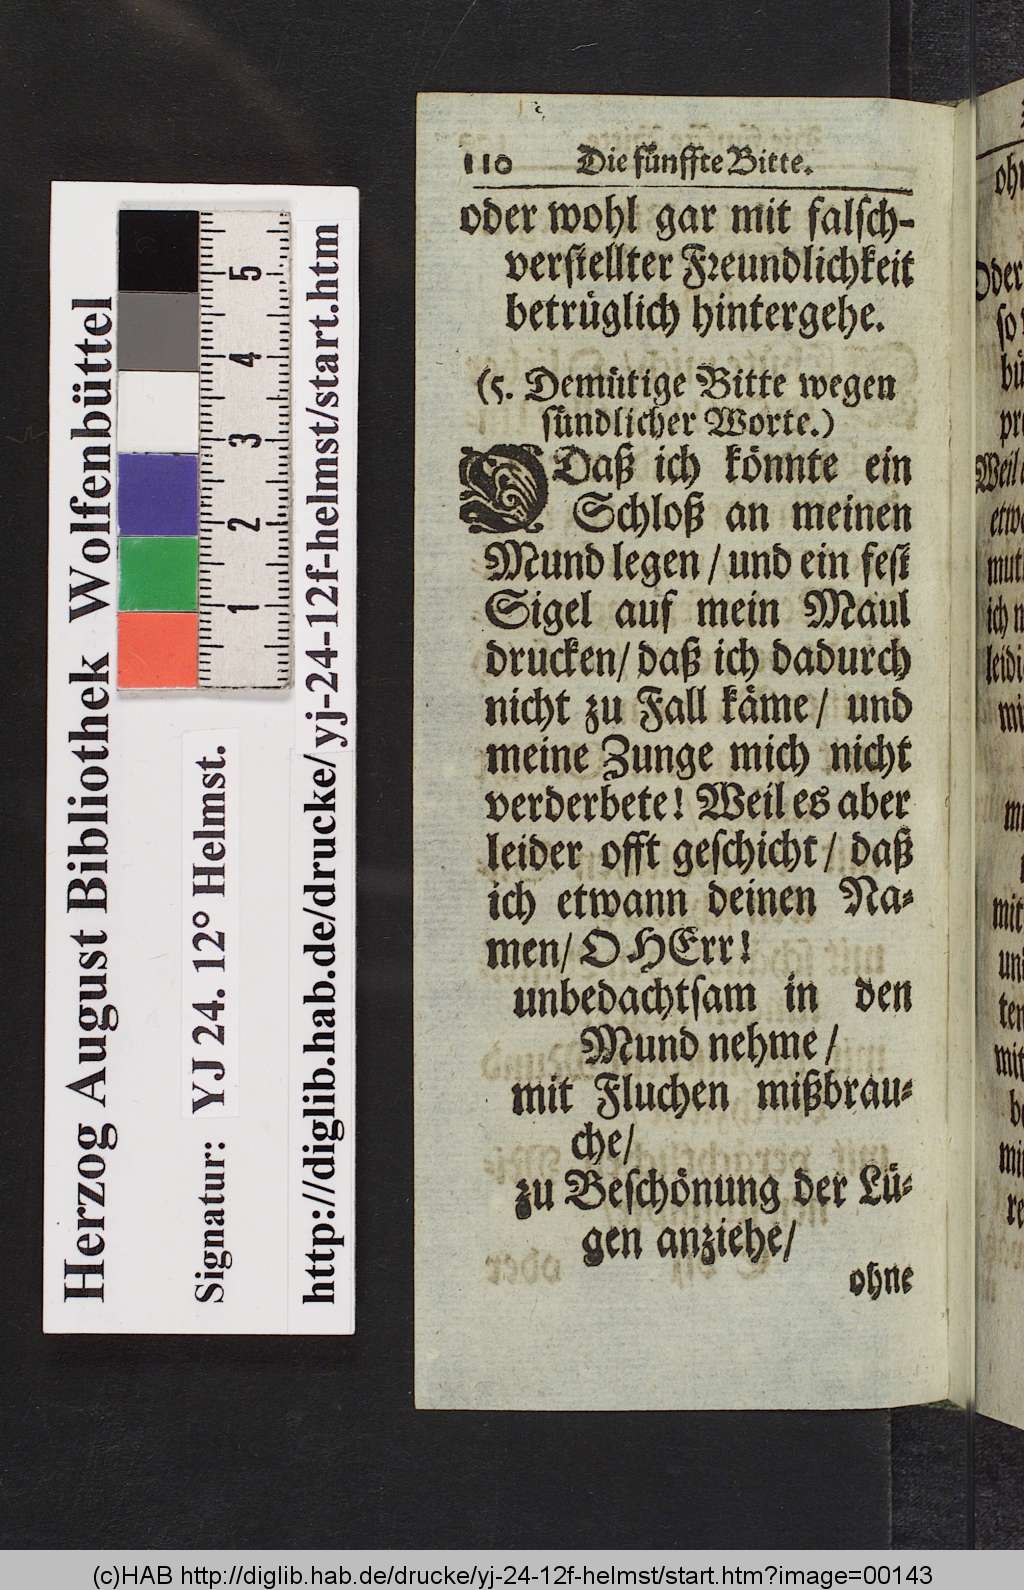 110 Die fünffte Bitte.
oder wohl gar mit falsch-
verstellter Freundlichkeit
betrüglich hintergehe.
(5. Demütige Bitte wegen
sündlicher Worte.)
O Daß ich könnte ein
Schloß an meinen
Mund legen / und ein fest
Sigel auf mein Maul
drucken / daß ich dadurch
nicht zu Fall käme / und
meine Zunge mich nicht
verderbete! Weil es aber
leider offt geschicht / daß
ich etwann deinen Na-
men / O HErr!
unbedachtsam in den
Mund nehme /
mit Fluchen mißbrau-
che /
zu Beschönung der Lü-
gen anziehe /
ohne
Herzog August Bibliothek Wolfenbüttel
Signatur: YJ 24. 12° Helmst.
http://diglib.hab.de/drucke/yj-24-12f-helmst/start.htm
5
4
3
2
1
(c)HAB http://diglib.hab.de/drucke/yj-24-12f-helmst/start.htm?image=00143